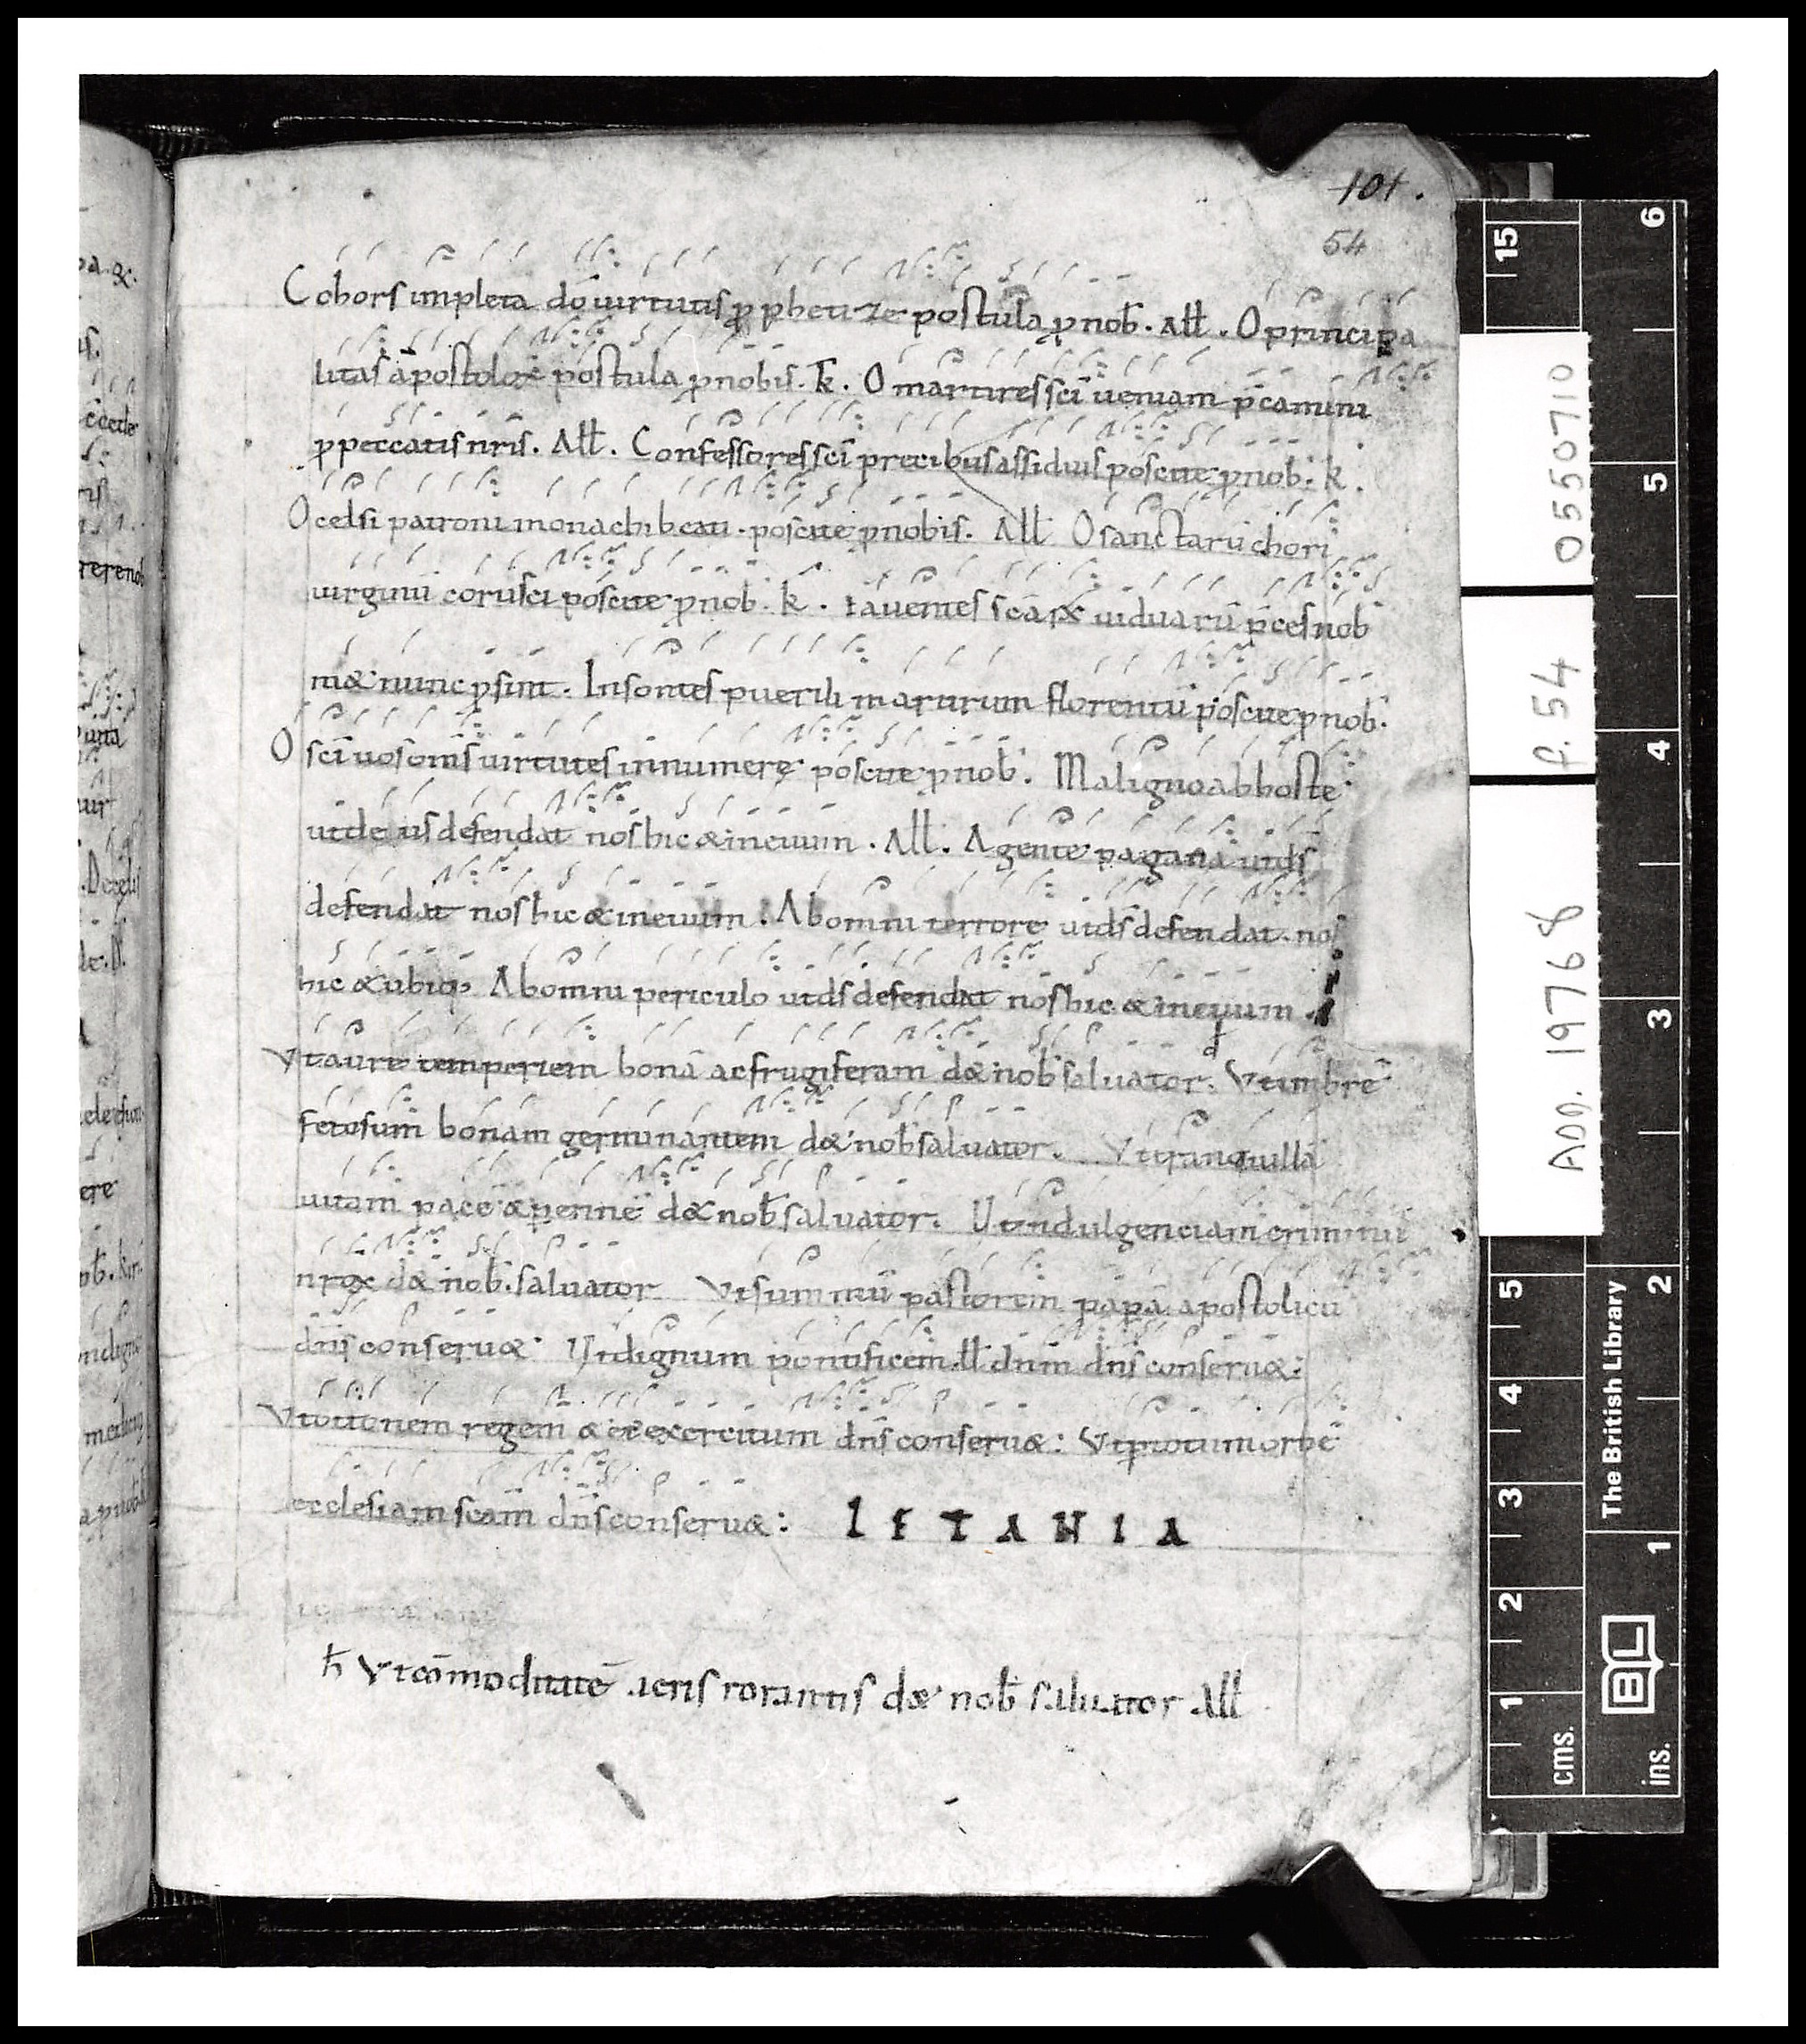 101.
54
Cohors impleta dō uirtutis ꝓ pheti ze postula ꝓ nob̄. Aƚƚ. O principa
litas apostoloꝝ postula ꝓ nobis. k̄. O martires sc̄i ueniam p̄camini
ꝓ peccatis nr̄is. Aƚƚ. Confessores sc̄i precibus assiduis poscite ꝓ nob̄. k̄.
O celsi patroni monachi beati. poscite ꝓ nobis. Aƚƚ O sanctarū chori
uirginū corusci poscite ꝓ nob̄. k̄. Fauentes sc̄aꝝ uiduarū p̄ces nob̄
m& nunc ꝓsint. Insontes puerili martirum florentū poscite ꝓ nob̄.
O sc̄i uos om̄s uirtutes innumerę poscite ꝓ nob̄. Maligno ab hoste
ut de us defendat nos hic & in euum. Aƚƚ. A gente pagana ut ds̄
defendat nos hic & in euum. Ab omni terrore ut ds̄ defendat nos
hic & ubiqꝫ Ab omni periculo ut ds̄ defendat nos hic & in euum.
Ut aure temperiem bonā ac frugiferam d& nob̄ saluator. Ut imbrē
fetosum bonam germinantem d& nob̄ saluator. Ut tranquillā
uitam pacē & ꝑennē d& nob̄ saluator. Ut indulgenciam criminū
nr̄oꝝ d& nob̄. saluator Ut summū pastorem papā apostolicū
dn̄s conseru& Ut dignum pontificem .iƚƚ. dn̄m dn̄s conseru&:
Ut ottonem regem & ei exercitum dn̄s conseru&: Ut ꝑ totum orbē
ecclesiam sc̄am dn̄s conseru&: LETANIA
h̄ Ut cōmoditatē aeris rorantis d& nob̄ saluator Aƚƚ
ADD. 19768
f. 54
05507 10
The British Library
BL
cms.
ins.
1 2 3 4 5 15
1 2 3 4 5 6